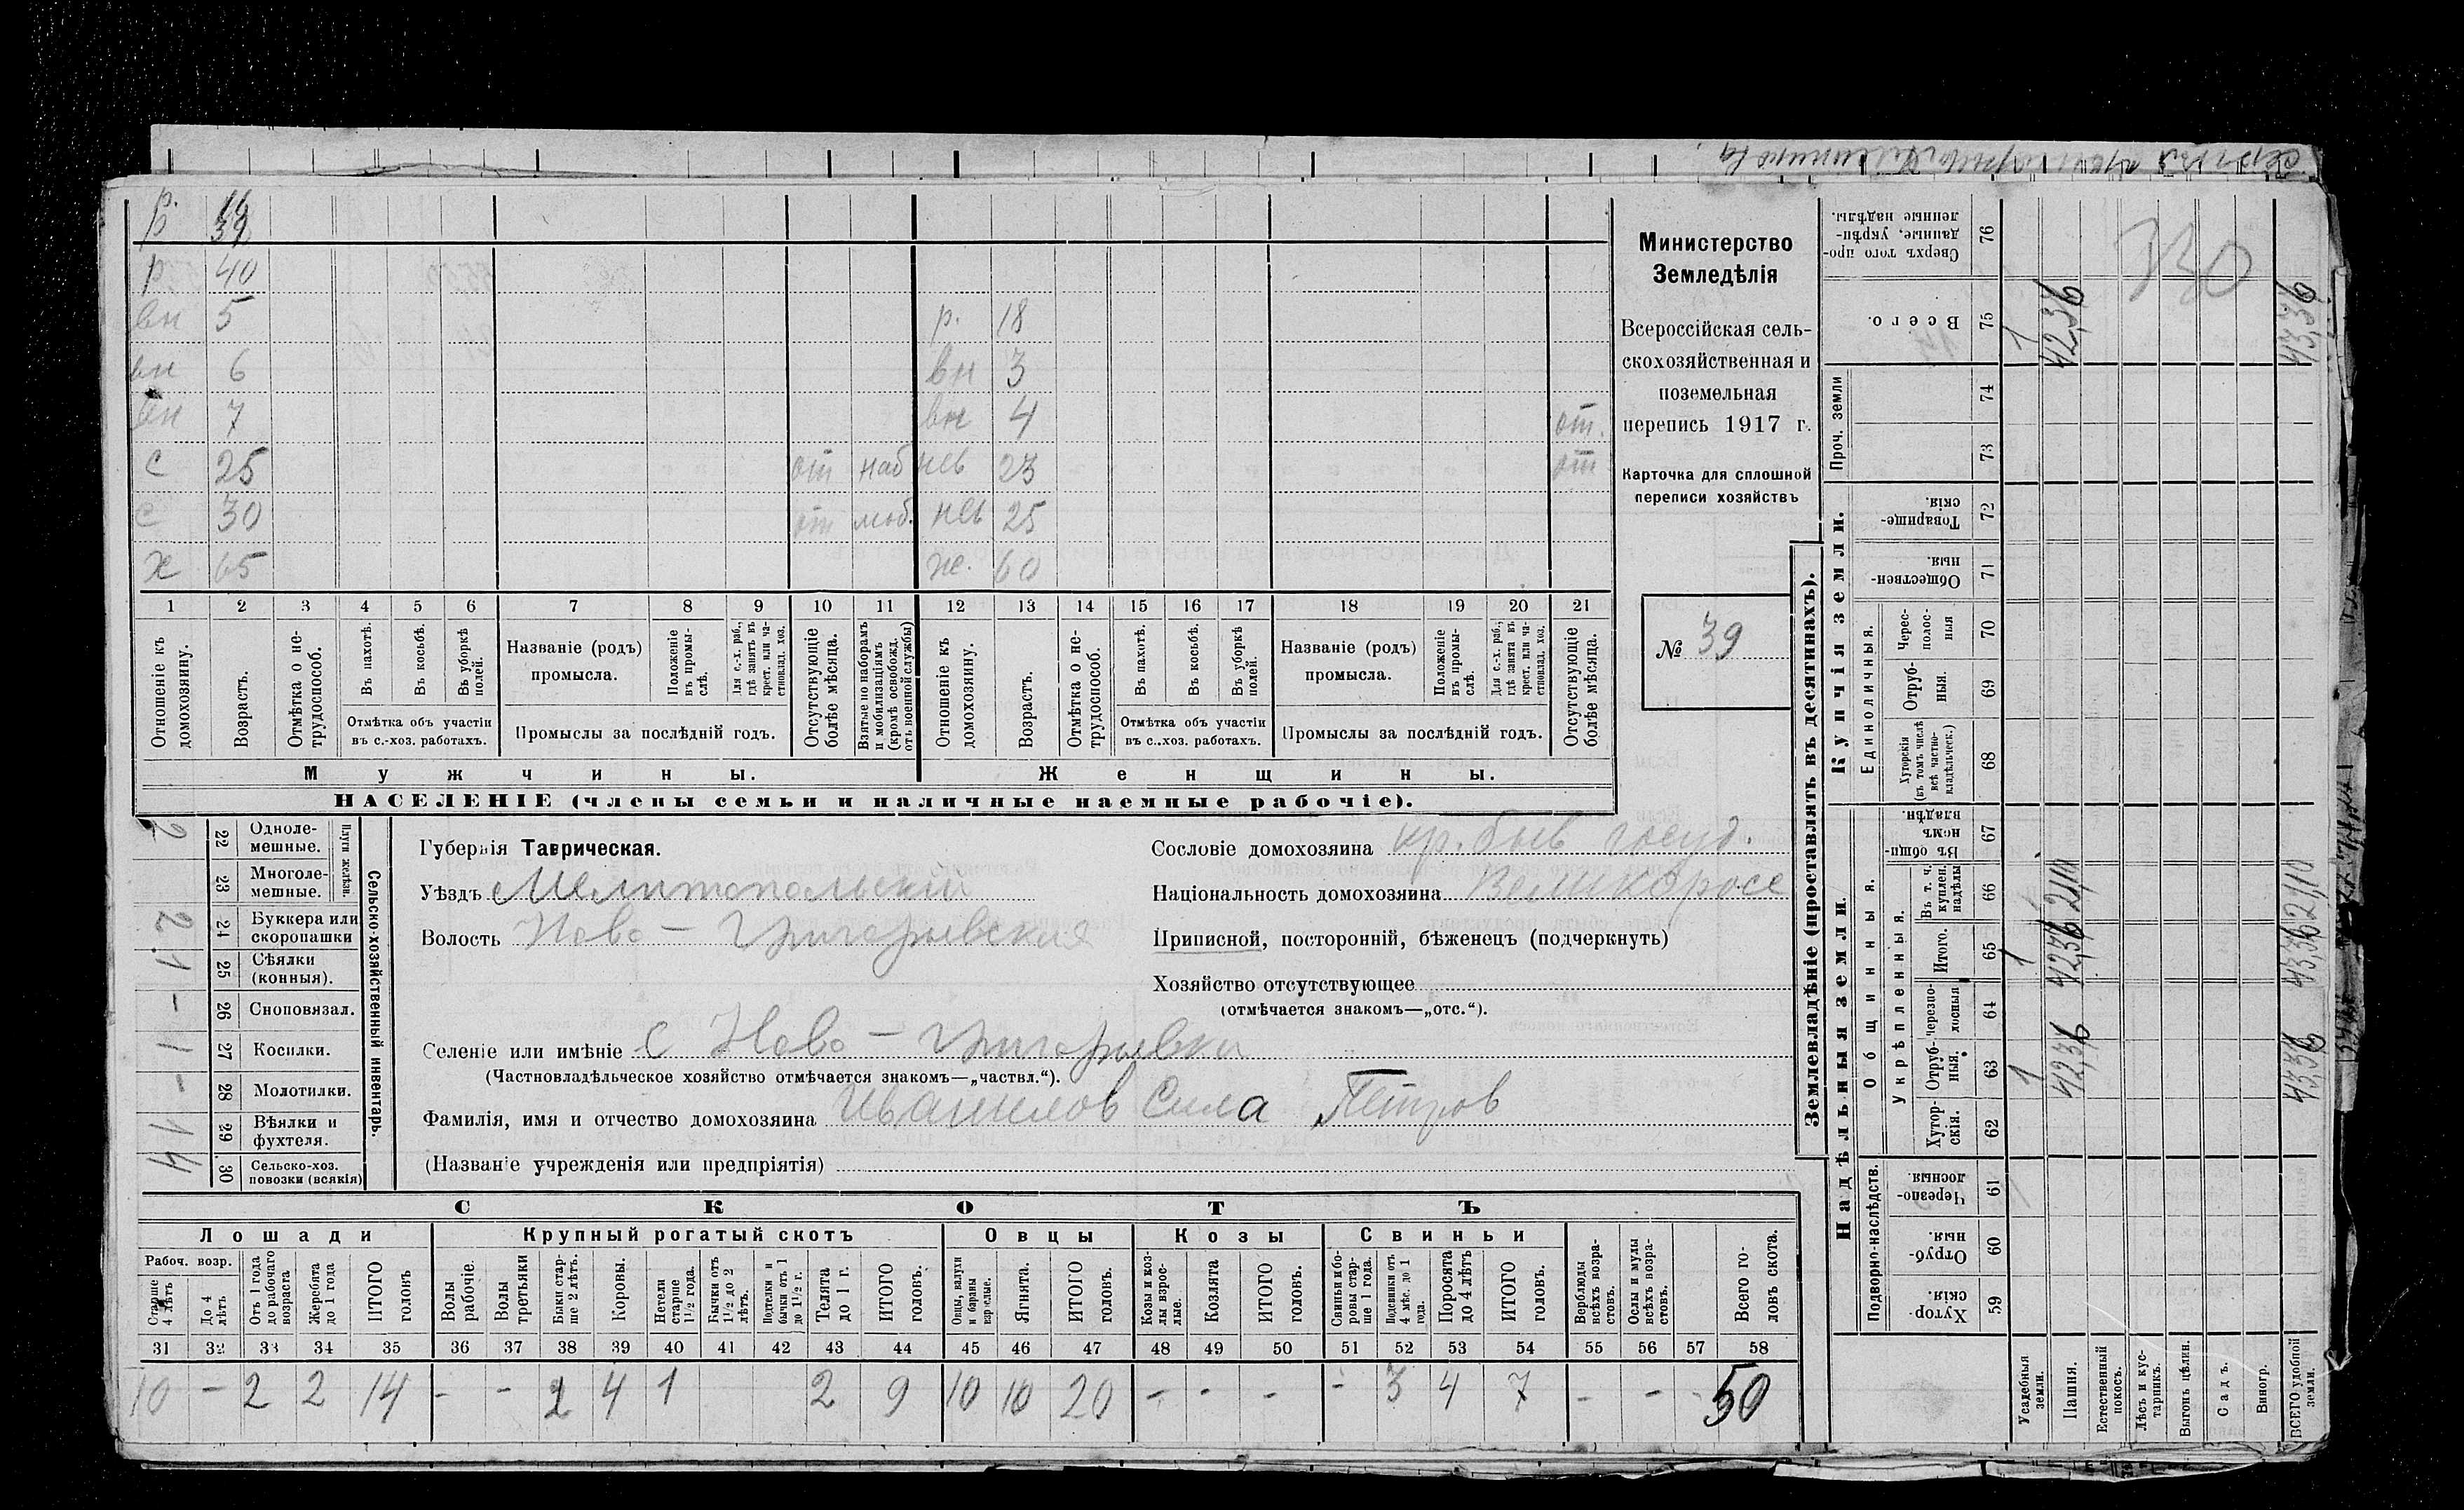 р. 39
р 40
вн 5
р. 18
вн 6
вн 3
вн 7
вн 4 от.
с 25 от наб
нев 23 от
с 30 от моб.
нев 25
х 65
же. 60
1 2 3 4 5 6 7 8 9 10 11 12 13 14 15 16 17 18 19 20 21
Отношеніе къ домохозяину.
Возрастъ.
Отмѣтка о нетрудоспособ.
Въ пахотѣ.
Въ косьбѣ.
Въ уборкѣ полей.
Отмѣтка объ участіи въ с.-хоз. работахъ.
Названіе (родъ) промысла.
Положеніе въ промыслѣ.
Для с.-х. раб., гдѣ занять въ крест. или частновлад. хоз.
Промыслы за послѣдній годъ.
Отсутствующіе болѣе мѣсяца.
Взятые по наборамъ и мобилизаціямъ (кромѣ освобожд. отъ военной службы)
Отношеніе къ домохозяину.
Возрастъ.
Отмѣтка о нетрудоспособ.
Въ пахотѣ.
Въ косьбѣ.
Въ уборкѣ полей.
Отмѣтка объ участіи въ с.-хоз. работахъ.
Названіе (родъ) промысла.
Положеніе въ промыслѣ.
Для с.-х. раб., гдѣ занята въ крест. или частновлад. хоз.
Промыслы за послѣдній годъ.
Отсутствующіе болѣе мѣсяца.
Мужчины.
Женщины.
НАСЕЛЕНІЕ (члены семьи и наличные наемные рабочіе).
Министерство
Земледѣлія
Всероссійская сель-
скохозяйственная и
поземельная
перепись 1917 г.
Карточка для сплошной
переписи хозяйствъ
№ 39
Сельско-хозяйственный инвентарь.
Плуги желѣзн.
22 Одноле-мешные. 2
23 Многоле-мешные.
24 Буккера или скоропашки 2
25 Сѣялки (конныя). 1
26 Сноповязал. -
27 Косилки. 1
28 Молотилки. -
29 Вѣялки и фухтеля. 1
30 Сельско-хоз. повозки (всякія) 4
Губернія Таврическая.
Уѣздъ Мелитопольскій
Волость Ново-Григорьевская
Селеніе или имѣніе с Ново-Григорьевка
(Частновладѣльческое хозяйство отмѣчается знакомъ—„частвл.“).
Фамилія, имя и отчество домохозяина Сила Петров
(Названіе учрежденія или предпріятія)
Сословіе домохозяина кр. быв госуд.
Національность домохозяина Великоросс
Приписной, посторонній, бѣженецъ (подчеркнуть)
Хозяйство отсутствующее
(отмѣчается знакомъ—„отс.“).
СКОТЪ
Лошади
Крупный рогатый скотъ
Овцы
Козы
Свиньи
Рабоч. возр.
Старше 4 лѣтъ
До 4 лѣтъ
Отъ 1 года до рабочаго возраста
Жеребята до 1 года
ИТОГО головъ
Волы рабочіе.
Волы третьяки
Быки старше 2 лѣтъ.
Коровы.
Нетели старше 1½ года.
Бычки отъ 1½ до 2 лѣтъ.
Подтелки и бычки отъ 1 до 1½ г.
Телята до 1 г.
ИТОГО головъ.
Овцы, валухи и бараны взрослые.
Ягнята.
ИТОГО головъ.
Козы и козлы взрослые.
Козлята
ИТОГО головъ.
Свиньи и боровы старше 1 года.
Подсвинки отъ 4 мѣс. до 1 года.
Поросята до 4 лѣтъ
ИТОГО головъ.
Верблюды всѣхъ возрастовъ.
Ослы и мулы всѣхъ возрастовъ.
Всего головъ скота.
31 32 33 34 35 36 37 38 39 40 41 42 43 44 45 46 47 48 49 50 51 52 53 54 55 56 57 58
10 - 2 2 14 - - 2 4 1 2 9 10 10 20 - - - - 3 4 7 - - - 50
Землевладѣніе (проставлять въ десятинахъ).
Надѣльныя земли.
Купчія земли.
Проч. земли
Подворно-наслѣдств.
Общинныя.
Укрѣпленныя.
Единоличныя.
Хутор-скія. 59
Отруб-ныя. 60
Черезпо-лосныя 61
Хутор-скія. 62
Отруб-ныя. 63
черезпо-лосныя 64
Итого. 65
Въ т. ч. куплен. надѣлы 66
Въ общин-номъ владѣн. 67
Хуторскія (въ томъ числѣ всѣ частно-владѣльческ.) 68
Отруб-ныя. 69
Черес-полос-ныя 70
Обществен-ныя 71
Товарище-скія. 72
73
74
Всего. 75
Сверхъ того проданные, укрѣпленные надѣлы. 76
Усадебныя земли. 1 1 1
Пашня. 42,36 42,36 21,10 42,36
Естественный покосъ.
Лѣсъ и кустарникъ.
Выгонъ цѣлин.
Садъ.
Виногр.
ВСЕГО удобной земли. 43,36 43,36 21,10 43,36